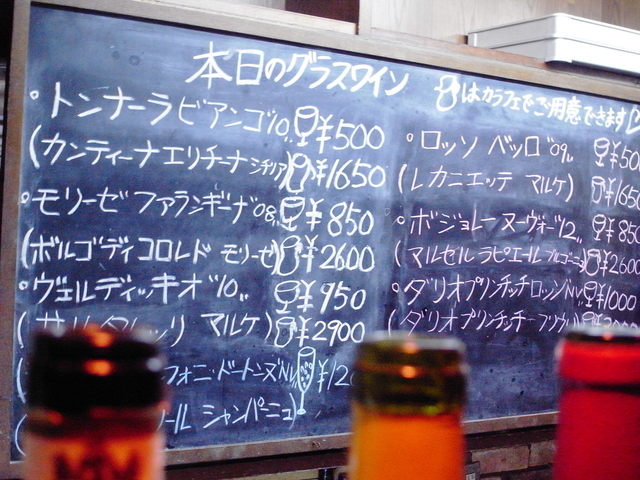 本日のグラスワイン
はカラフェでご用意できます
トンナーラ ビアンゴ'10.. ¥500
(カンティーナエリチーナ シチリア) ¥1650
モリーゼ ファランギーナ'08.. ¥850
(ボルゴ ディ コロレド モリーゼ) ¥2600
ヴェルディッキオ'10.. ¥950
マルケ) ¥2900
フォニ・ドートンヌNV ¥120
ール シャンパーニュ)
ロッソ ベッロ '09.. ¥50
(レ カニエッテ マルケ) ¥165
ボジョレーヌーヴォー'12.. ¥850
(マルセル ラピエール ブルゴーニュ) ¥2600
ダリオプリンチッチ ロッソNV ¥1000
(ダリオプリンチッチ